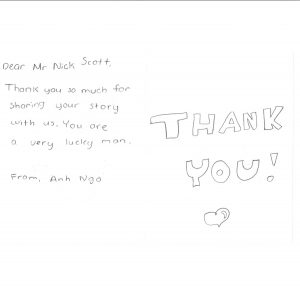 Dear Mr Nick Scott,
Thank you so much for
sharing your story
with us. You are
a very lucky man.
From, Anh Ngo
THANK
YOU!